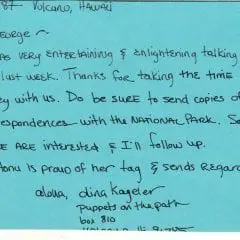 87 Volcano, Hawaii
eorge ~
as very entertaining & enlightening talking
last week. Thanks for taking the time
ey with us. Do be sure to send copies of
respondences with the National Park. So
e are interested & I'll follow up.
Honu is proud of her tag & sends regar
aloha, dina Kageler
puppets on the path
box 810